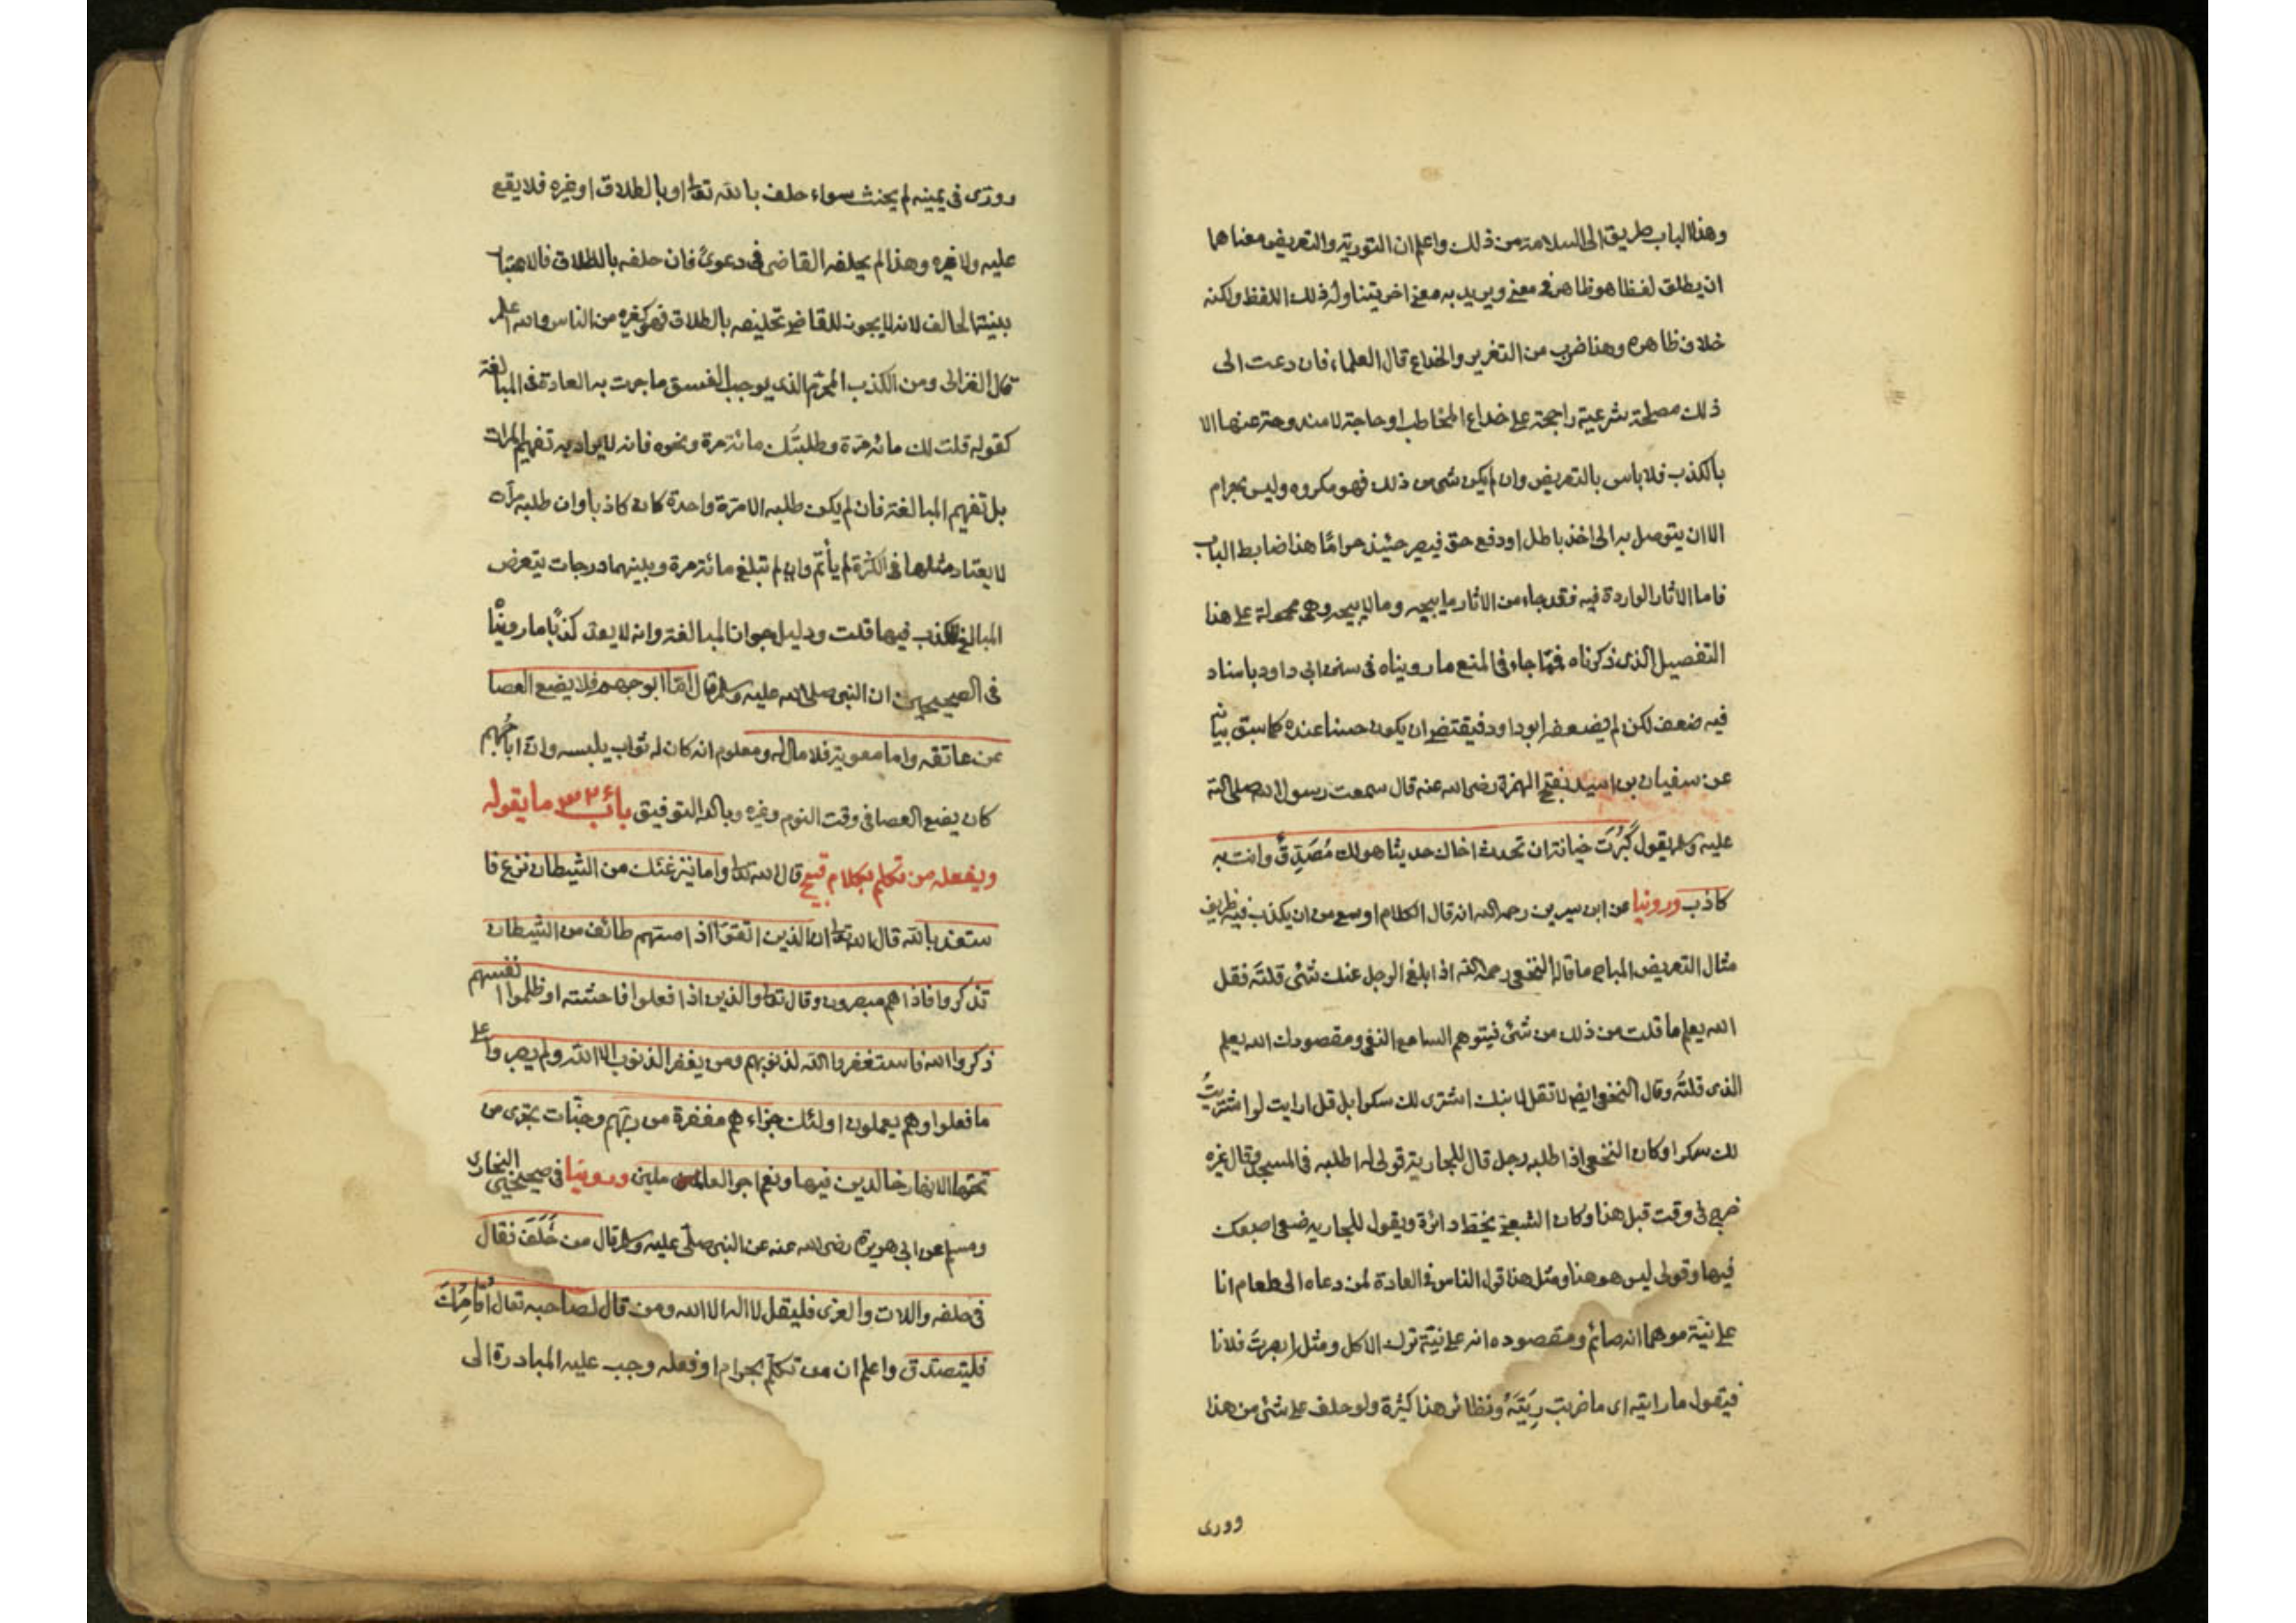 وهذا الباب طريق الى السلامة من ذلك واعلم ان التورية والتعريض معناهما
ان يطلق لفظا هو ظاهر في معنى ويريد به معنى اخر يتناوله ذلك اللفظ ولكنه
خلاف ظاهره وهذا ضرب من التغرير والخداع قال العلماء فان دعت الى
ذلك مصلحة شرعية راجحة على خداع المخاطب او حاجة لا مندوحة عنها الا
بالكذب فلا باس بالتعريض وان لم يكن شئ من ذلك فهو مكروه وليس بحرام
الا ان يتوصل به الى اخذ باطل او دفع حق فيصر حينئذ حرامًا هذا ضابط الباب
فاما الآثار الواردة فيه فقد جاء من الاثار ما يبيحه وما لا يبيحه وهى محمولة على هذا
التفصيل الذى ذكرناه فمّا جاء فى المنع ما رويناه فى سنن ابى داود باسناد
فيه ضعف لكن لم يضعفه ابو داود فيقتضى ان يكون حسنا عنده كما سبق بيانه
عن سفيان بن اسيد بفتح الهمزة رضى الله عنه قال سمعت رسول الله صلى الله
عليه وسلم يقول كَبُرَت خيانة ان تحدث اخاك حديثا هو لك مُصَدِّقٌ وانت به
كاذب وروينا عن ابن سيرين رحمه الله انه قال الكلام اوسع من ان يكذب فيه ظريف
مثال التعريض المباح ما قاله النخعى رحمه الله اذا ابلغ الرجل عنك شئى قلتَه فقل
الله يعلم ما قلت من ذلك من شئ فيتوهم السامع النفى ومقصودك الله يعلم
الذى قلتُه وقال النخعى ايضا لا تقل لابنك اشترى لك سكرا بل قل ارايت لو اشتريتُ
لك سكرا وكان النخعى اذا طلبه رجل قال للجارية قولى له اطلبه فى المسجد وقال غيره
خرج فى وقت قبل هذا وكان الشعبى يخط دائرة ويقول للجاريه ضعى اصبعك
فيها وقولى ليس هو هنا ومثل هذا قول الناس فى العادة لمن دعاه الى طعام انا
على نيّة موهما انه صائم ومقصوده انه على نيّة ترك الاكل ومثل ابصرت فلانا
فيقول ما رايته اى ما ضربت رِيَتَهُ ونظائر هذا كثرة ولو حلف على شئ من هذا
وورى
وورّى فى يمينه لم يحنث سواء حلف بالله تعا او بالطلاق او غيره فلا يقع
عليه ولا غيره وهذا لم يحلفه القاضى فى دعوىً فان حلفه بالطلاق فالاعتبا
بنيته الحالف لانه لا يجوز للقاضى تحليفه بالطلاق فهو كغيره من الناس والله اعلم
قال الغزالى ومن الكذب المحرّم الذى يوجب الفسق ما جرت به العادة فى المبالغة
كقوله قلت لك مائة مرّة وطلبتَك مائة مرة ونحوه فانه لا يراد به تفهيم المرات
بل تفهيم المبالغة فان لم يكن طلبه الا مرّة واحدة كان كاذبا وان طلبه مرات
لا يعتاد مثلها فى الكثرة لم يأثم وان لم تبلغ مائة مرة وبينهما درجات يتعرض
المبالغ للكذب فيها قلت ودليل جواز المبالغة وانه لا يعد كذبًا ما رويناه
فى الصحيحين ان النبى صلى الله عليه وسلم قال امّا ابو جهم فلا يضع العصا
عن عاتقه واما معوية فلا مال له ومعلوم انه كان له ثواب يلبسه وانّ ابا جهم
كان يضع العصا فى وقت النوم وغيره وبالله التوفيق بابُ ٣٢ ما يقوله
ويفعله من تكلم بكلام قبيح قال الله تعا واما ينزغنك من الشيطان نزغ فا
ستعذ بالله قال الله تعا ان الذين اتقوا اذا مستهم طائف من الشيطان
تذكروا فاذا هم مبصرون وقال تعا والذين اذا فعلوا فاحشة او ظلموا انفسهم
ذكروا الله فاستغفروا الله لذنوبهم ومن يغفر الذنوب الا الله ولم يصروا على
ما فعلوا وهم يعلمون اولئك جزاءهم مغفرة من ربّهم وجنّات تجرى من
تحتها الانهار خالدين فيها ونعم اجر العاملين وروينا فى صحيحى البخارى
ومسلم عن ابى هريرة رضى الله عنه عن النبى صلى عليه وسلم قال من حَلَفَ فقال
فى حلفه واللات والعزى فليقل لا اله الا الله ومن قال لصاحبه تعال اُقامِرُك
فليتصدق واعلم ان من تكلّم بحرام او فعله وجب عليه المبادرة الى